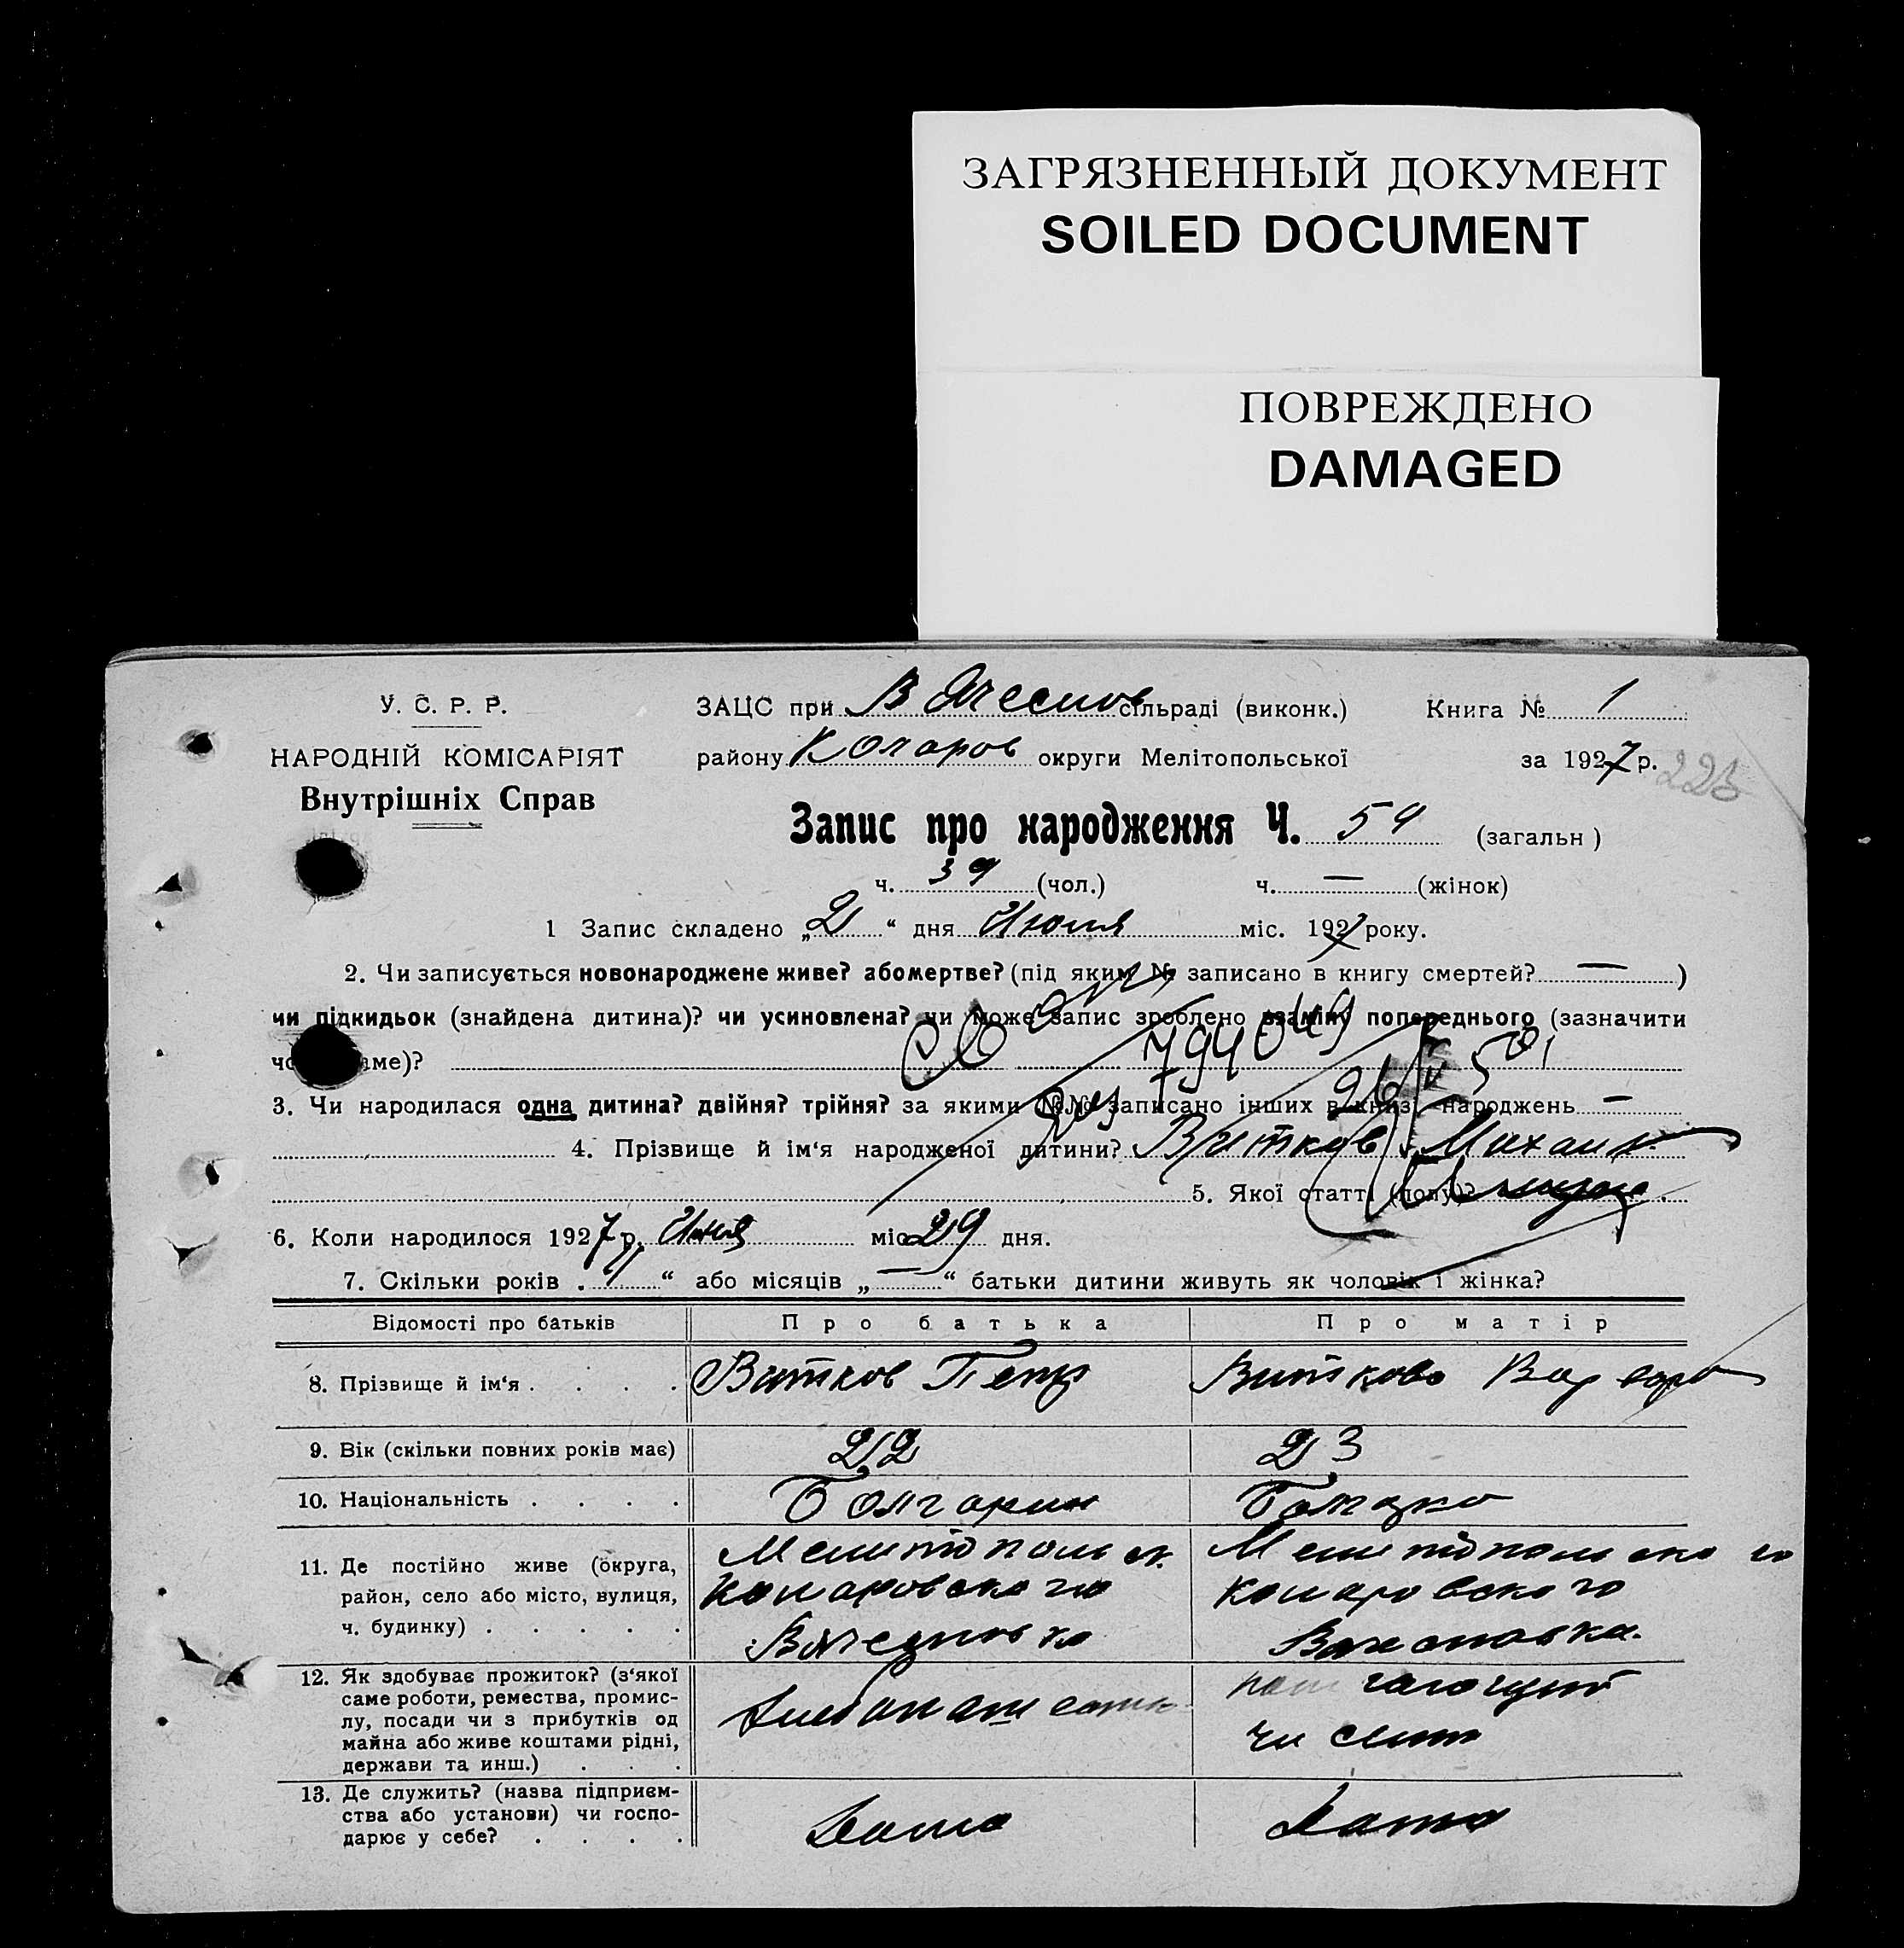 ЗАГРЯЗНЕННЫЙ ДОКУМЕНТ
SOILED DOCUMENT
ПОВРЕЖДЕНО
DAMAGED
У. С. Р. Р.
НАРОДНІЙ КОМІСАРІЯТ
Внутрішніх Справ
ЗАЦС при сільраді (виконк.) Книга № 1
району Коларов округи Мелітопольської за 1927 р. 223
Запис про народження Ч. 59 (загальн)
ч. 39 (чол.) ч. — (жінок)
1 Запис складено „2“ дня Июля міс. 1927 року.
2. Чи записується новонароджене живе? або мертве? (під яким № записано в книгу смертей? — )
чи підкидьок (знайдена дитина)? чи усиновлена? чи може запис зроблено взаміну попереднього (зазначити
аме)?
3. Чи народилася одна дитина? двійня? трійня? за якими №№ записано інших в книзі народжень —
4. Прізвище й ім‘я народженої дитини? Витков Михаил
5. Якої статті (полу)?
6. Коли народилося 1927 р. міс 29 дня.
7. Скільки років . 1 “ або місяців „ — “ батьки дитини живуть як чоловік і жінка?
Відомості про батьків Про батька Про матір
8. Прізвище й ім‘я . . . . Витков Петр Виткова Варвара
9. Вік (скільки повних років має) 22 23
10. Національність . . . . Болгарин Болгарка
11. Де постійно живе (округа,
район, село або місто, вулиця,
ч. будинку) . . . . .
Мелитопольск. Мелитопольского
Коларовского Коларовского
12. Як здобуває прожиток? (з‘якої
саме роботи, ремества, промис-
лу, посади чи з прибутків од
майна або живе коштами рідні,
держави та инш.) . . .
13. Де служить? (назва підприєм-
ства або установи) чи госпо-
дарює у себе? . . . .